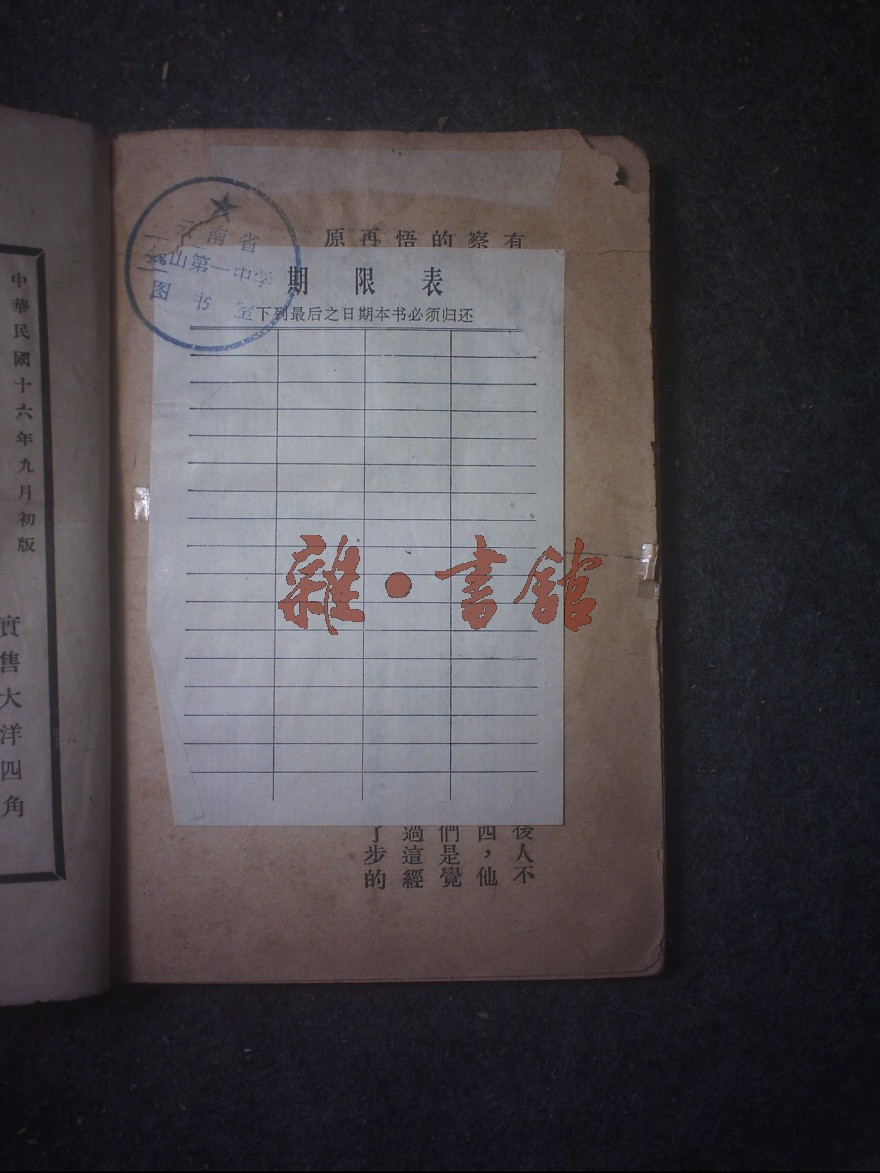 中華民國十六年九月初版
實售大洋四角
云南省
山第一中学
图书室
期限表
下列最后之日期本书必须归还
有
察
的
悟
再
原
後人不
四，他
們是覺
過這經
了步的
雜•書館